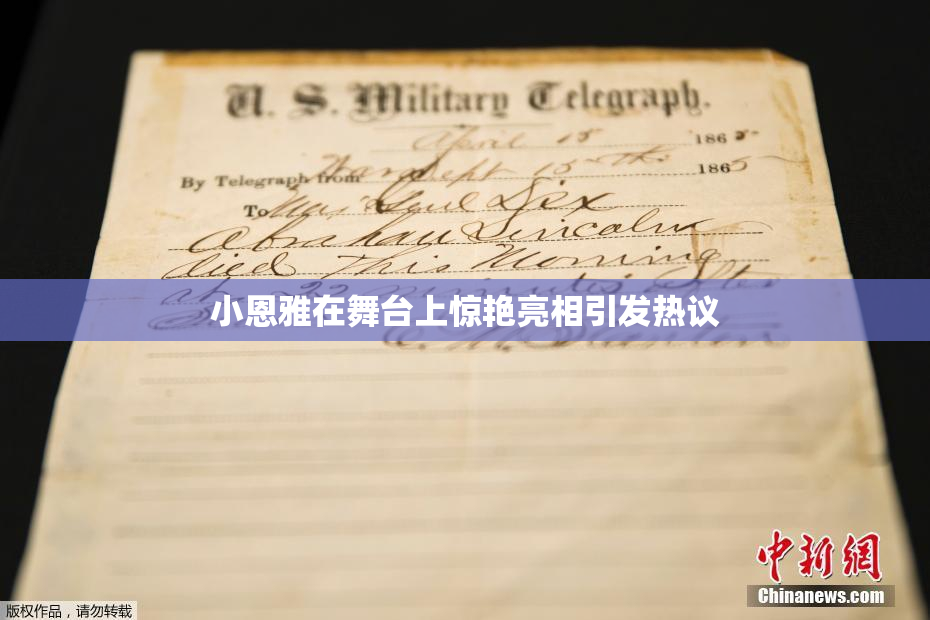 U. S. Military Telegraph.
April 15 1865
By Telegraph from War Dept 15th 1865
To Maj Genl Dix
Abraham Lincoln
died This Morning
at 22 minutes after
小恩雅在舞台上惊艳亮相引发热议
E. M. Stanton
中新網
Chinanews.com
版权作品，请勿转载